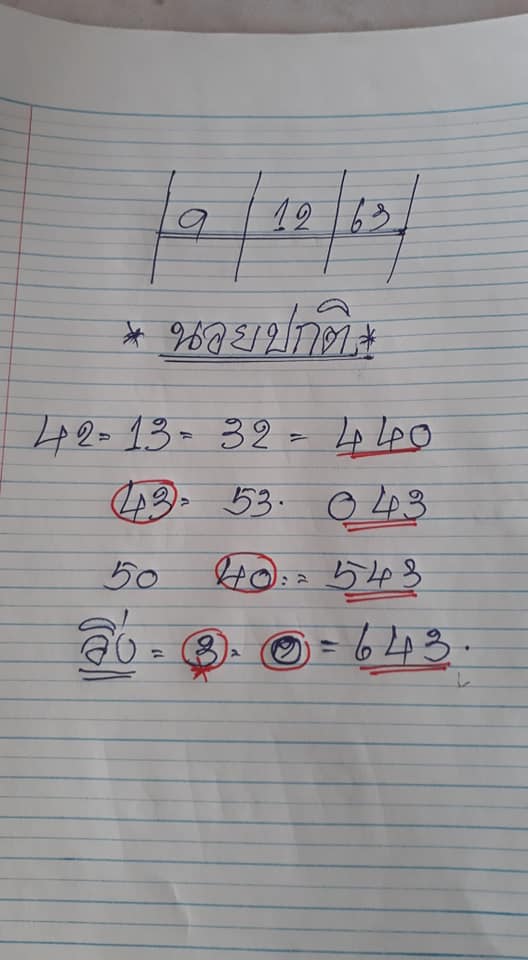 9 12 63
* นอยปกติ *
42 = 13 = 32 = 440
43 = 53. 043
50 40 : = 543
วิ่ง = 3 = 0 = 643.